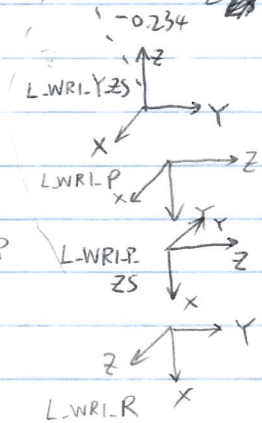 -0.234
Z
L_WRI_Y_ZS
Y
X
L_WRI_P
Z
X
Y
L_WRI_P_
Z
ZS
X
Y
Z
X
L_WRI_R